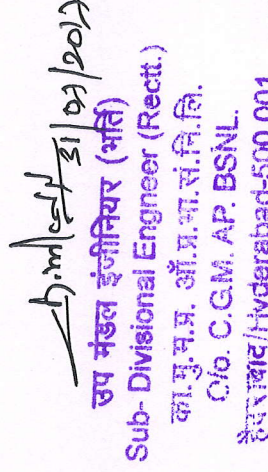 31/07/2012
उप मंडल इंजीनियर (भर्ति)
Sub- Divisional Engneer (Rectt.)
का.मु.म.प्र. ऑ.प्र.भा.सं.नि.लि.
C/o. C.G.M. AP. BSNL.
हैदराबाद/Hyderabad-500 001